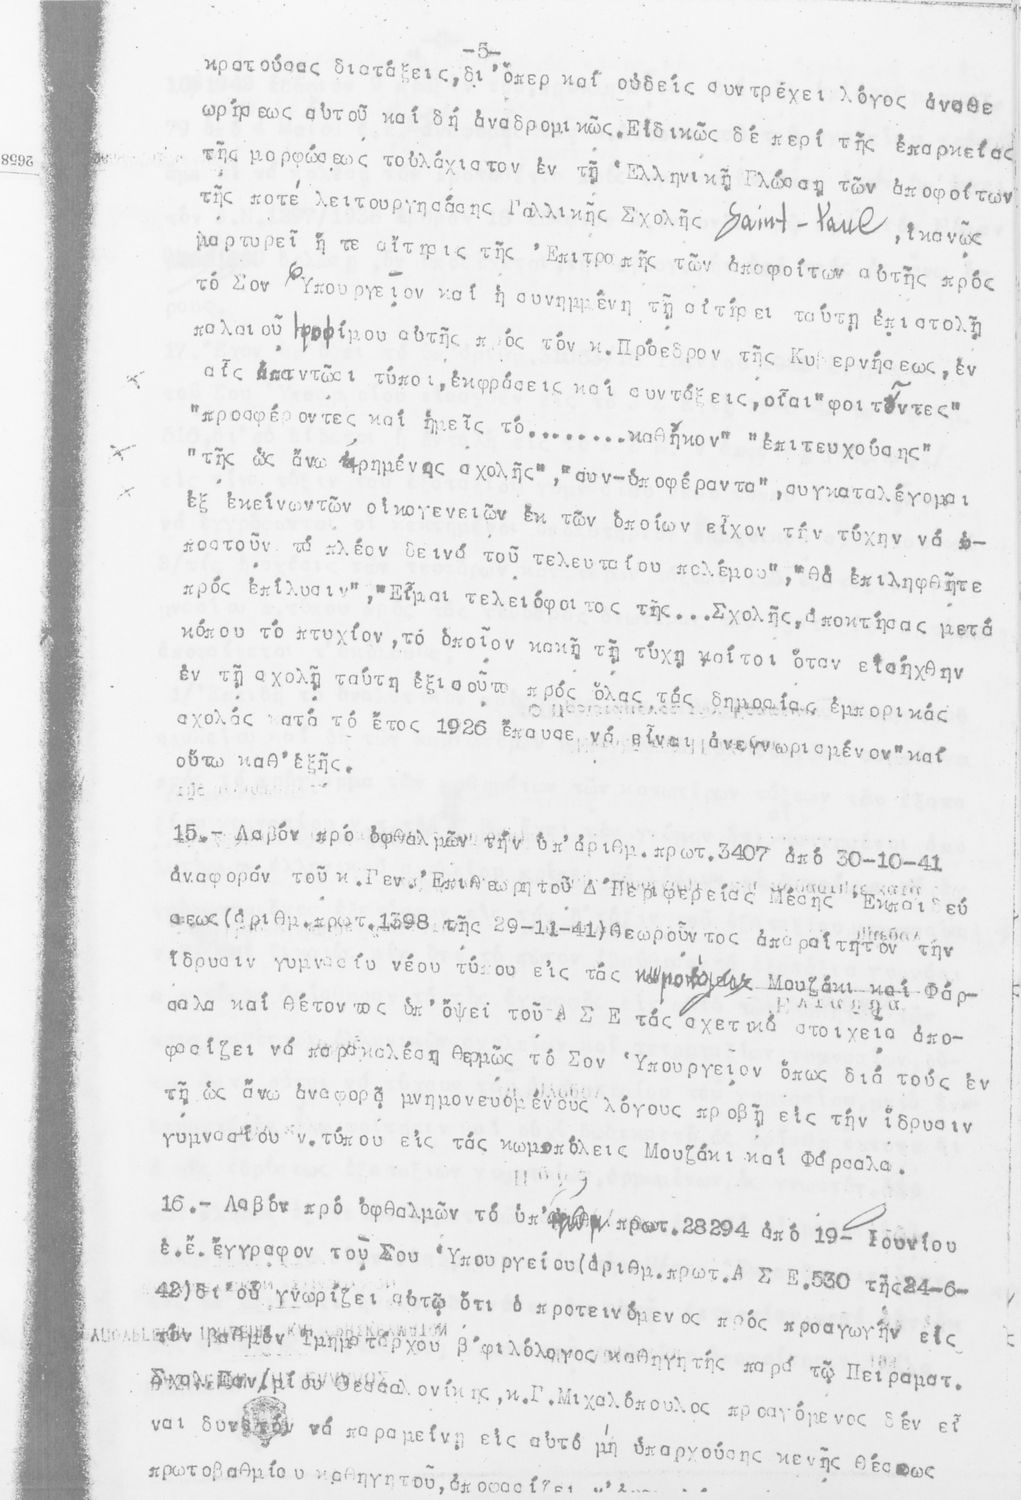 -5-
κρατούσας διατάξεις,δι'ὅπερ καί οὐδείς συντρέχει λόγος ἀναθε
ωρήσεως αὐτοῦ καί δή ἀναδρομικῶς.Εἰδικῶς δέ περί τῆς ἐπαρκείας
τῆς μορφώσεως τοὐλάχιστον ἐν τῇ Ἑλληνικῇ Γλώσσῃ τῶν ἀποφοίτων
τῆς ποτέ λειτουργησάσης Γαλλικῆς Σχολῆς Saint-Paul ,ἱκανῶς
μαρτυρεῖ ἥ τε αἴτησις τῆς Ἐπιτροπῆς τῶν ἀποφοίτων αὐτῆς πρός
τό Σον Ὑπουργεῖον καί ἡ συνημμένη τῇ αἰτήσει ταύτῃ ἐπιστολή
παλαιοῦ τροφίμου αὐτῆς πρός τόν κ.Πρόεδρον τῆς Κυβερνήσεως,ἐν
αἷς ἀπαντῶσι τύποι,ἐκφράσεις καί συντάξεις,οἷαι"φοιτοῦντες"
"προσφέροντες καί ἡμεῖς τό........καθῆκον" "ἐπιτευχούσης"
"τῆς ὡς ἄνω εἰρημένης σχολῆς","συν-ὑποφέραντα",συγκαταλέγομαι
ἐξ ἐκείνωντῶν οἰκογενειῶν ἐκ τῶν ὁποίων εἶχον τήν τύχην νά ὑ-
ποστοῦν τά πλέον δεινά τοῦ τελευταίου πολέμου","θά ἐπιληφθῆτε
πρός ἐπίλυσιν","Εἶμαι τελειόφοιτος τῆς...Σχολῆς,ἀποκτήσας μετά
κόπου τό πτυχίον,τό ὁποῖον κακῇ τῇ τύχῃ καίτοι ὅταν εἰσήχθην
ἐν τῇ σχολῇ ταύτῃ ἐξισοῦτο πρός ὅλας τάς δημοσίας ἐμπορικάς
σχολάς κατά τό ἔτος 1926 ἔπαυσε νά εἶναι ἀνεγνωρισμένον"καί
οὕτω καθ'ἑξῆς.
15.- Λαβόν πρό ὀφθαλμῶν τήν ὑπ'ἀριθμ.πρωτ.3407 ἀπό 30-10-41
ἀναφοράν τοῦ κ.Γεν.Ἐπιθεωρητοῦ Δ'Περιφερείας Μέσης Ἐκπαιδεύ
σεως(ἀριθμ.πρωτ.1398 τῆς 29-11-41)θεωροῦντος ἀπαραίτητον τήν
ἵδρυσιν γυμνασίυ νέου τύπου εἰς τάς κωμοπόλεις Μουζάκι καί Φάρ-
σαλα καί θέτοντος ὑπ'ὄψει τοῦ Α Σ Ε τάς σχετικά στοιχεῖα ἀπο-
φασίζει νά παρακαλέσῃ θερμῶς τό Σον Ὑπουργεῖον ὅπως διά τούς ἐν
τῇ ὡς ἄνω ἀναφορᾷ μνημονευομένους λόγους προβῇ εἰς τήν ἵδρυσιν
γυμνασίου ν.τύπου εἰς τάς κωμοπόλεις Μουζάκι καί Φάρσαλα.
16.- Λαβόν πρό ὀφθαλμῶν τό ὑπ'ἀριθμ. πρωτ.28294 ἀπό 19- Ἰουνίου
ἐ.ἔ.ἔγγραφον τοῦ Σου Ὑπουργείου(ἀριθμ.πρωτ.Α Σ Ε.530 τῆς24-6-
42)δι'οὗ γνωρίζει αὐτῷ ὅτι ὁ προτεινόμενος πρός προαγωγήν εἰς
τόν βαθμόν Τμηματάρχου β'φιλόλογος καθηγητής παρά τῷ Πειραματ.
Σχολ.Παν/μίου Θεσσαλονίκης,κ.Γ.Μιχαλόπουλος προαγόμενος δέν εἶ
ναι δυνατόν νά παραμείνῃ εἰς αὐτό μή ὑπαρχούσης κενῆς θέσεως
πρωτοβαθμίου καθηγητοῦ,ἀποφασίζει
2658